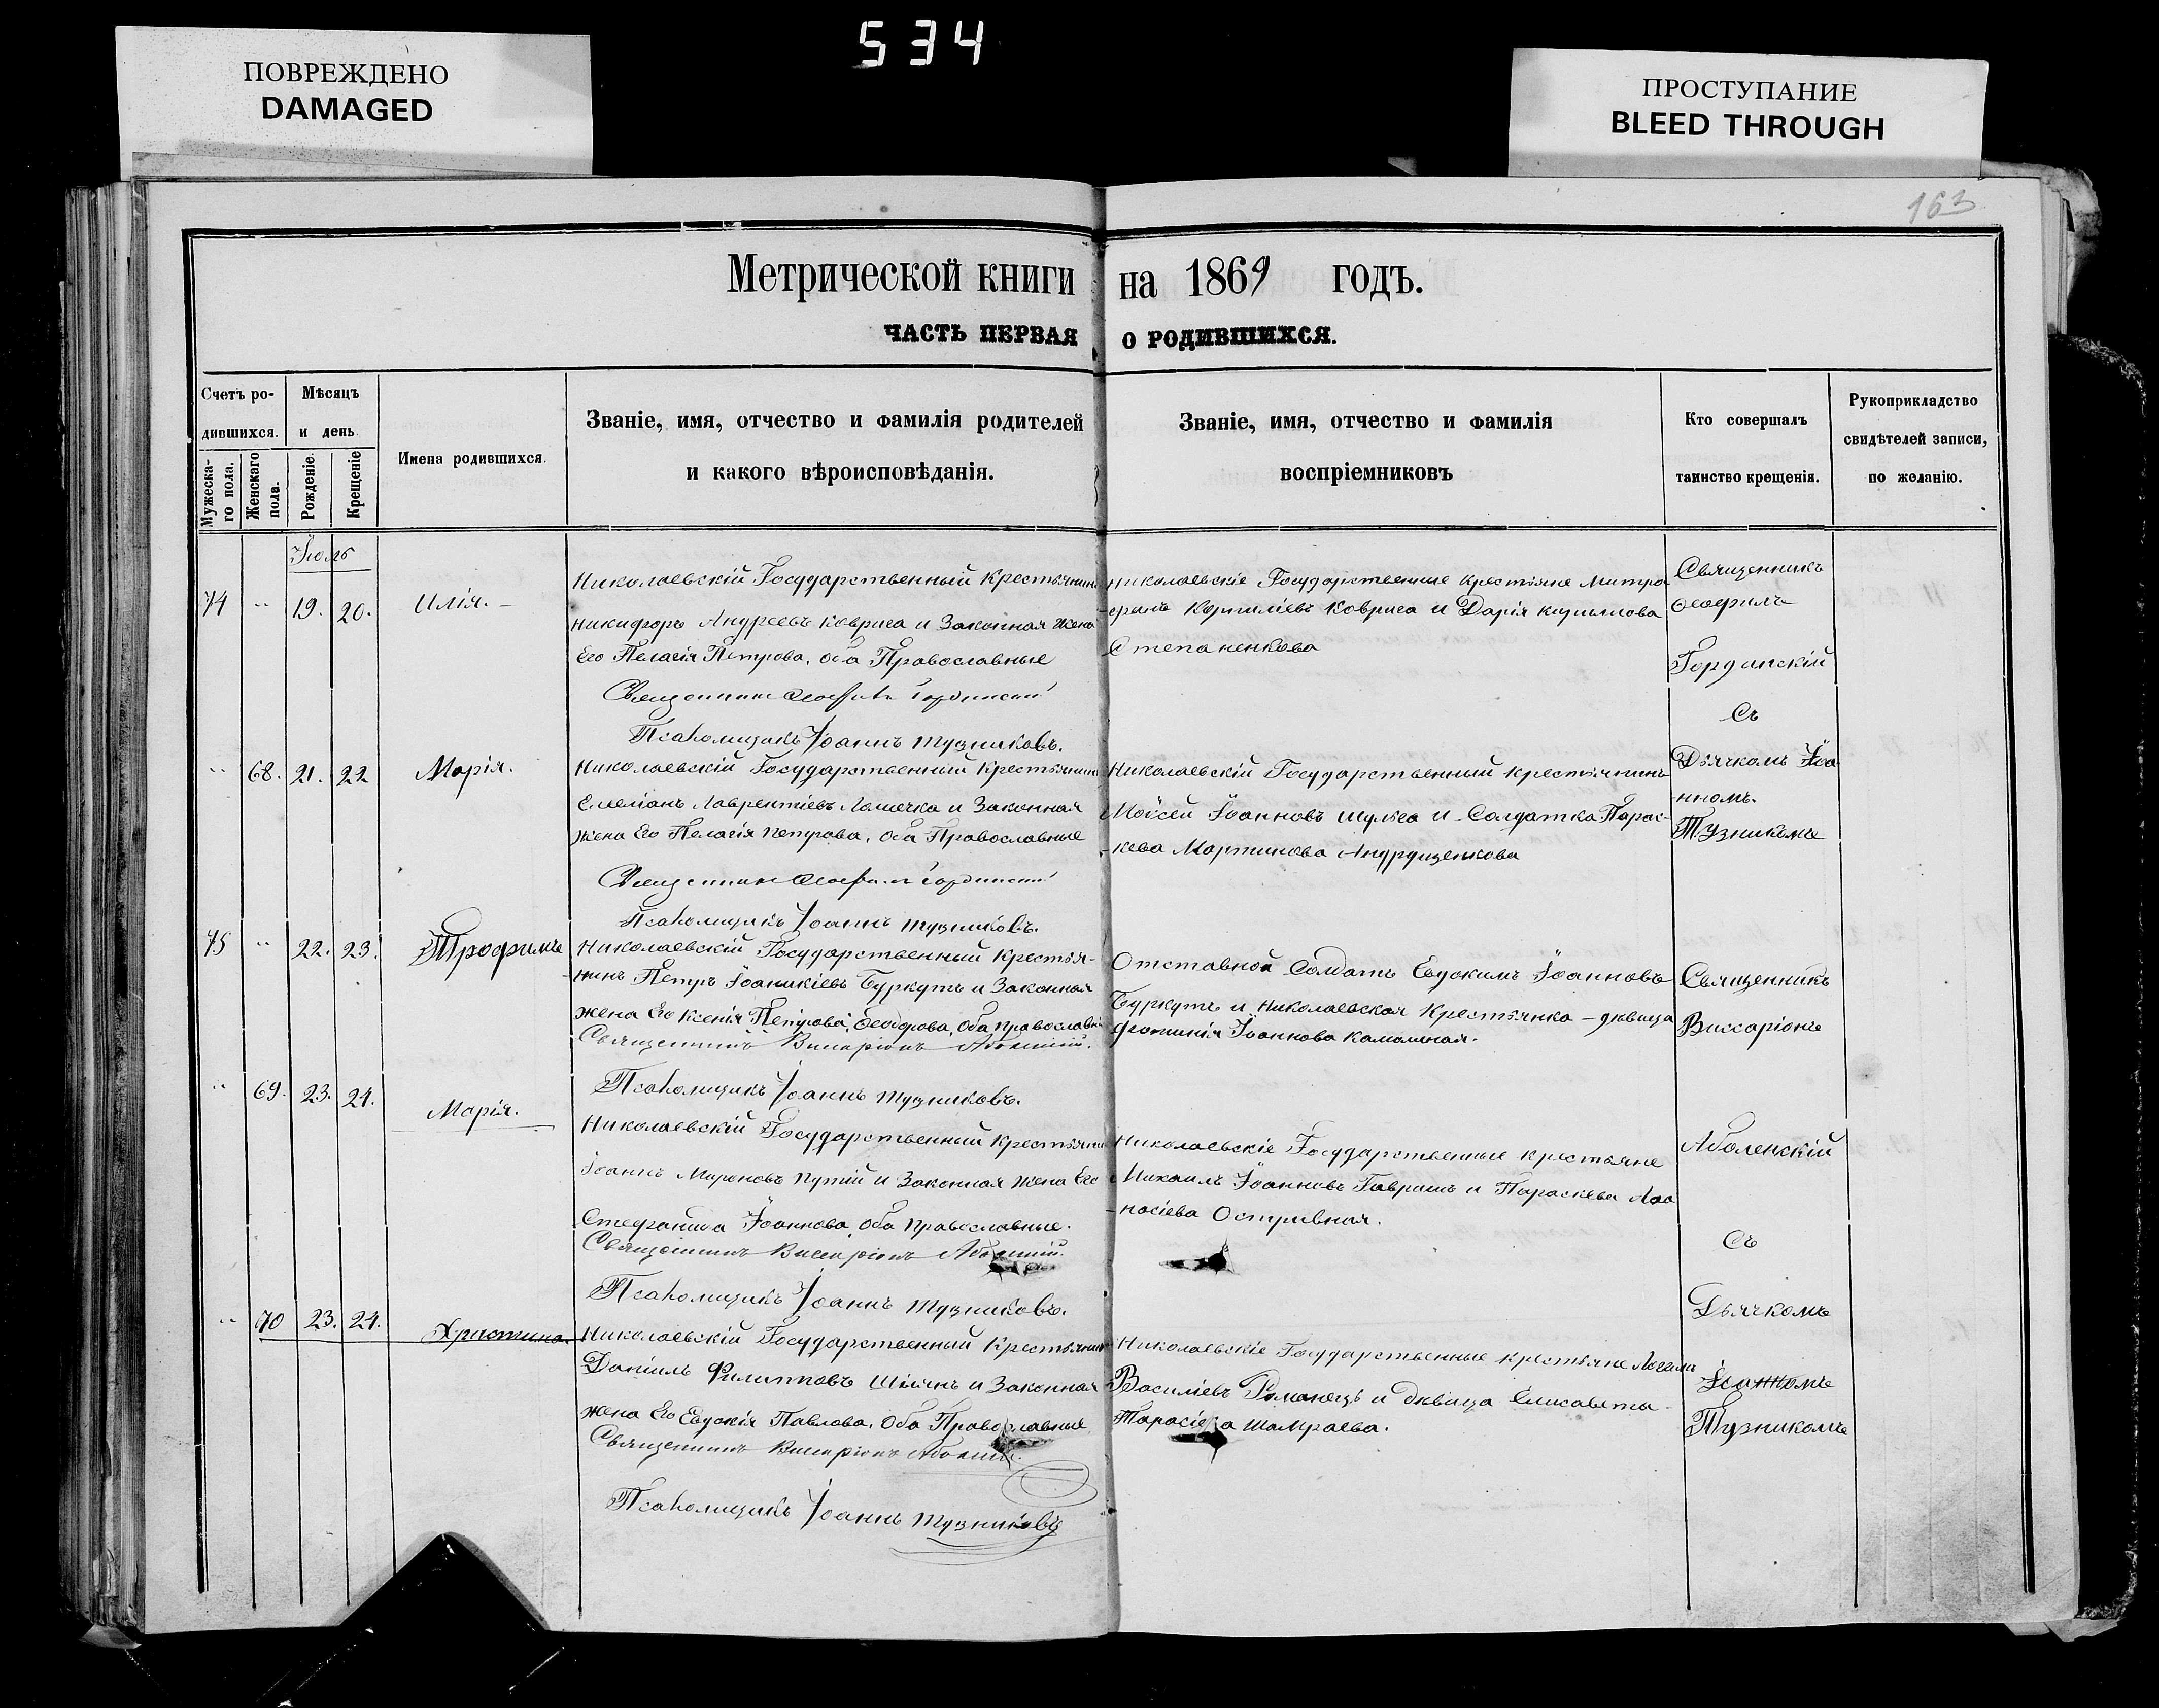 534
ПОВРЕЖДЕНО
DAMAGED
ПРОСТУПАНИЕ
BLEED THROUGH
163
Метрической книги на 1869 годъ.
ЧАСТЬ ПЕРВАЯ О РОДИВШИХСЯ.
Счетъ ро-
дившихся.
Мужеска-
го пола.
Женскаго
пола.
Мѣсяцъ
и день
Рожденіе.
Крещеніе
Имена родившихся.
Званіе, имя, отчество и фамилія родителей
и какого вѣроисповѣданія.
Званіе, имя, отчество и фамилія
воспріемниковъ
Кто совершалъ
таинство крещенія.
Рукоприкладство
свидѣтелей записи,
по желанію.
Іюль
74 " 19. 20. Илія.
Николаевскій Государственный Крестьянинъ
Никифоръ Андреевъ Коврига и Законная Жена
Его Пелагія Петрова, оба Православные
Священникъ Ѳеофилъ Гординскій
Псаломщикъ Іоаннъ Тузниковъ.
Николаевскіе Государственные крестьяне Митро-
фанъ Корниліевъ Коврига и Дарія Кириллова
Степаненкова
Священникъ
Ѳеофилъ
Гординскій
Съ
Дьячкомъ Іоа
нномъ.
Тузникомъ
" 68. 21. 22 Марія.
Николаевскій Государственный Крестьянинъ
Емеліанъ Лаврентіевъ и Законная
жена Его Пелагія Петрова, оба Православные
Священникъ Ѳеофилъ Гординскій
Псаломщикъ Іоаннъ Тузниковъ.
Николаевскій Государственный крестьянинъ
Моѵсей Іоанновъ Шульга и Солдатка Парас-
кева Мартинова Андрущенкова
75 " 22. 23. Трофимъ
Николаевскій Государственный Крестья-
нинъ Петръ Іоаникіевъ Буркутъ и Законная
жена Его Ксенія Петрова, Ѳеодорова, Оба Православны
Священникъ Виссаріонъ Аболенскій.
Псаломщикъ Іоаннъ Тузниковъ.
Отставной Солдатъ Евдокимъ Іоанновъ
Буркутъ и Николаевская Крестьянка – дѣвица
Іоаннова
Священникъ
Виссаріонъ
Аболенскій
Съ
Дьячкомъ
Іоанномъ
Тузникомъ
" 69. 23. 24. Марія.
Николаевскій Государственный Крестьянин
Іоаннъ Мироновъ Путій и Законная Жена Его
Стефанида Іоаннова, Оба православные.
Священникъ Виссаріонъ Аболенскій.
Псаломщикъ Іоаннъ Тузниковъ.
Николаевскіе Государственные крестьяне
Михаилъ Іоанновъ Гавришъ и Параскева Аѳа
насіева Остривная.
" 70 23. 24. Христина.
Николаевскій Государственный Крестьянинъ
Даніилъ Филипповъ Шіянъ и Законная
жена Его Евдокія Павлова, Оба Православные
Священникъ Виссаріонъ Аболенскій.
Псаломщикъ Іоаннъ Тузниковъ
Николаевскіе Государственные крестьяне
Василіевъ Романецъ и дѣвица Елисавета
Тарасіева Шамраева.